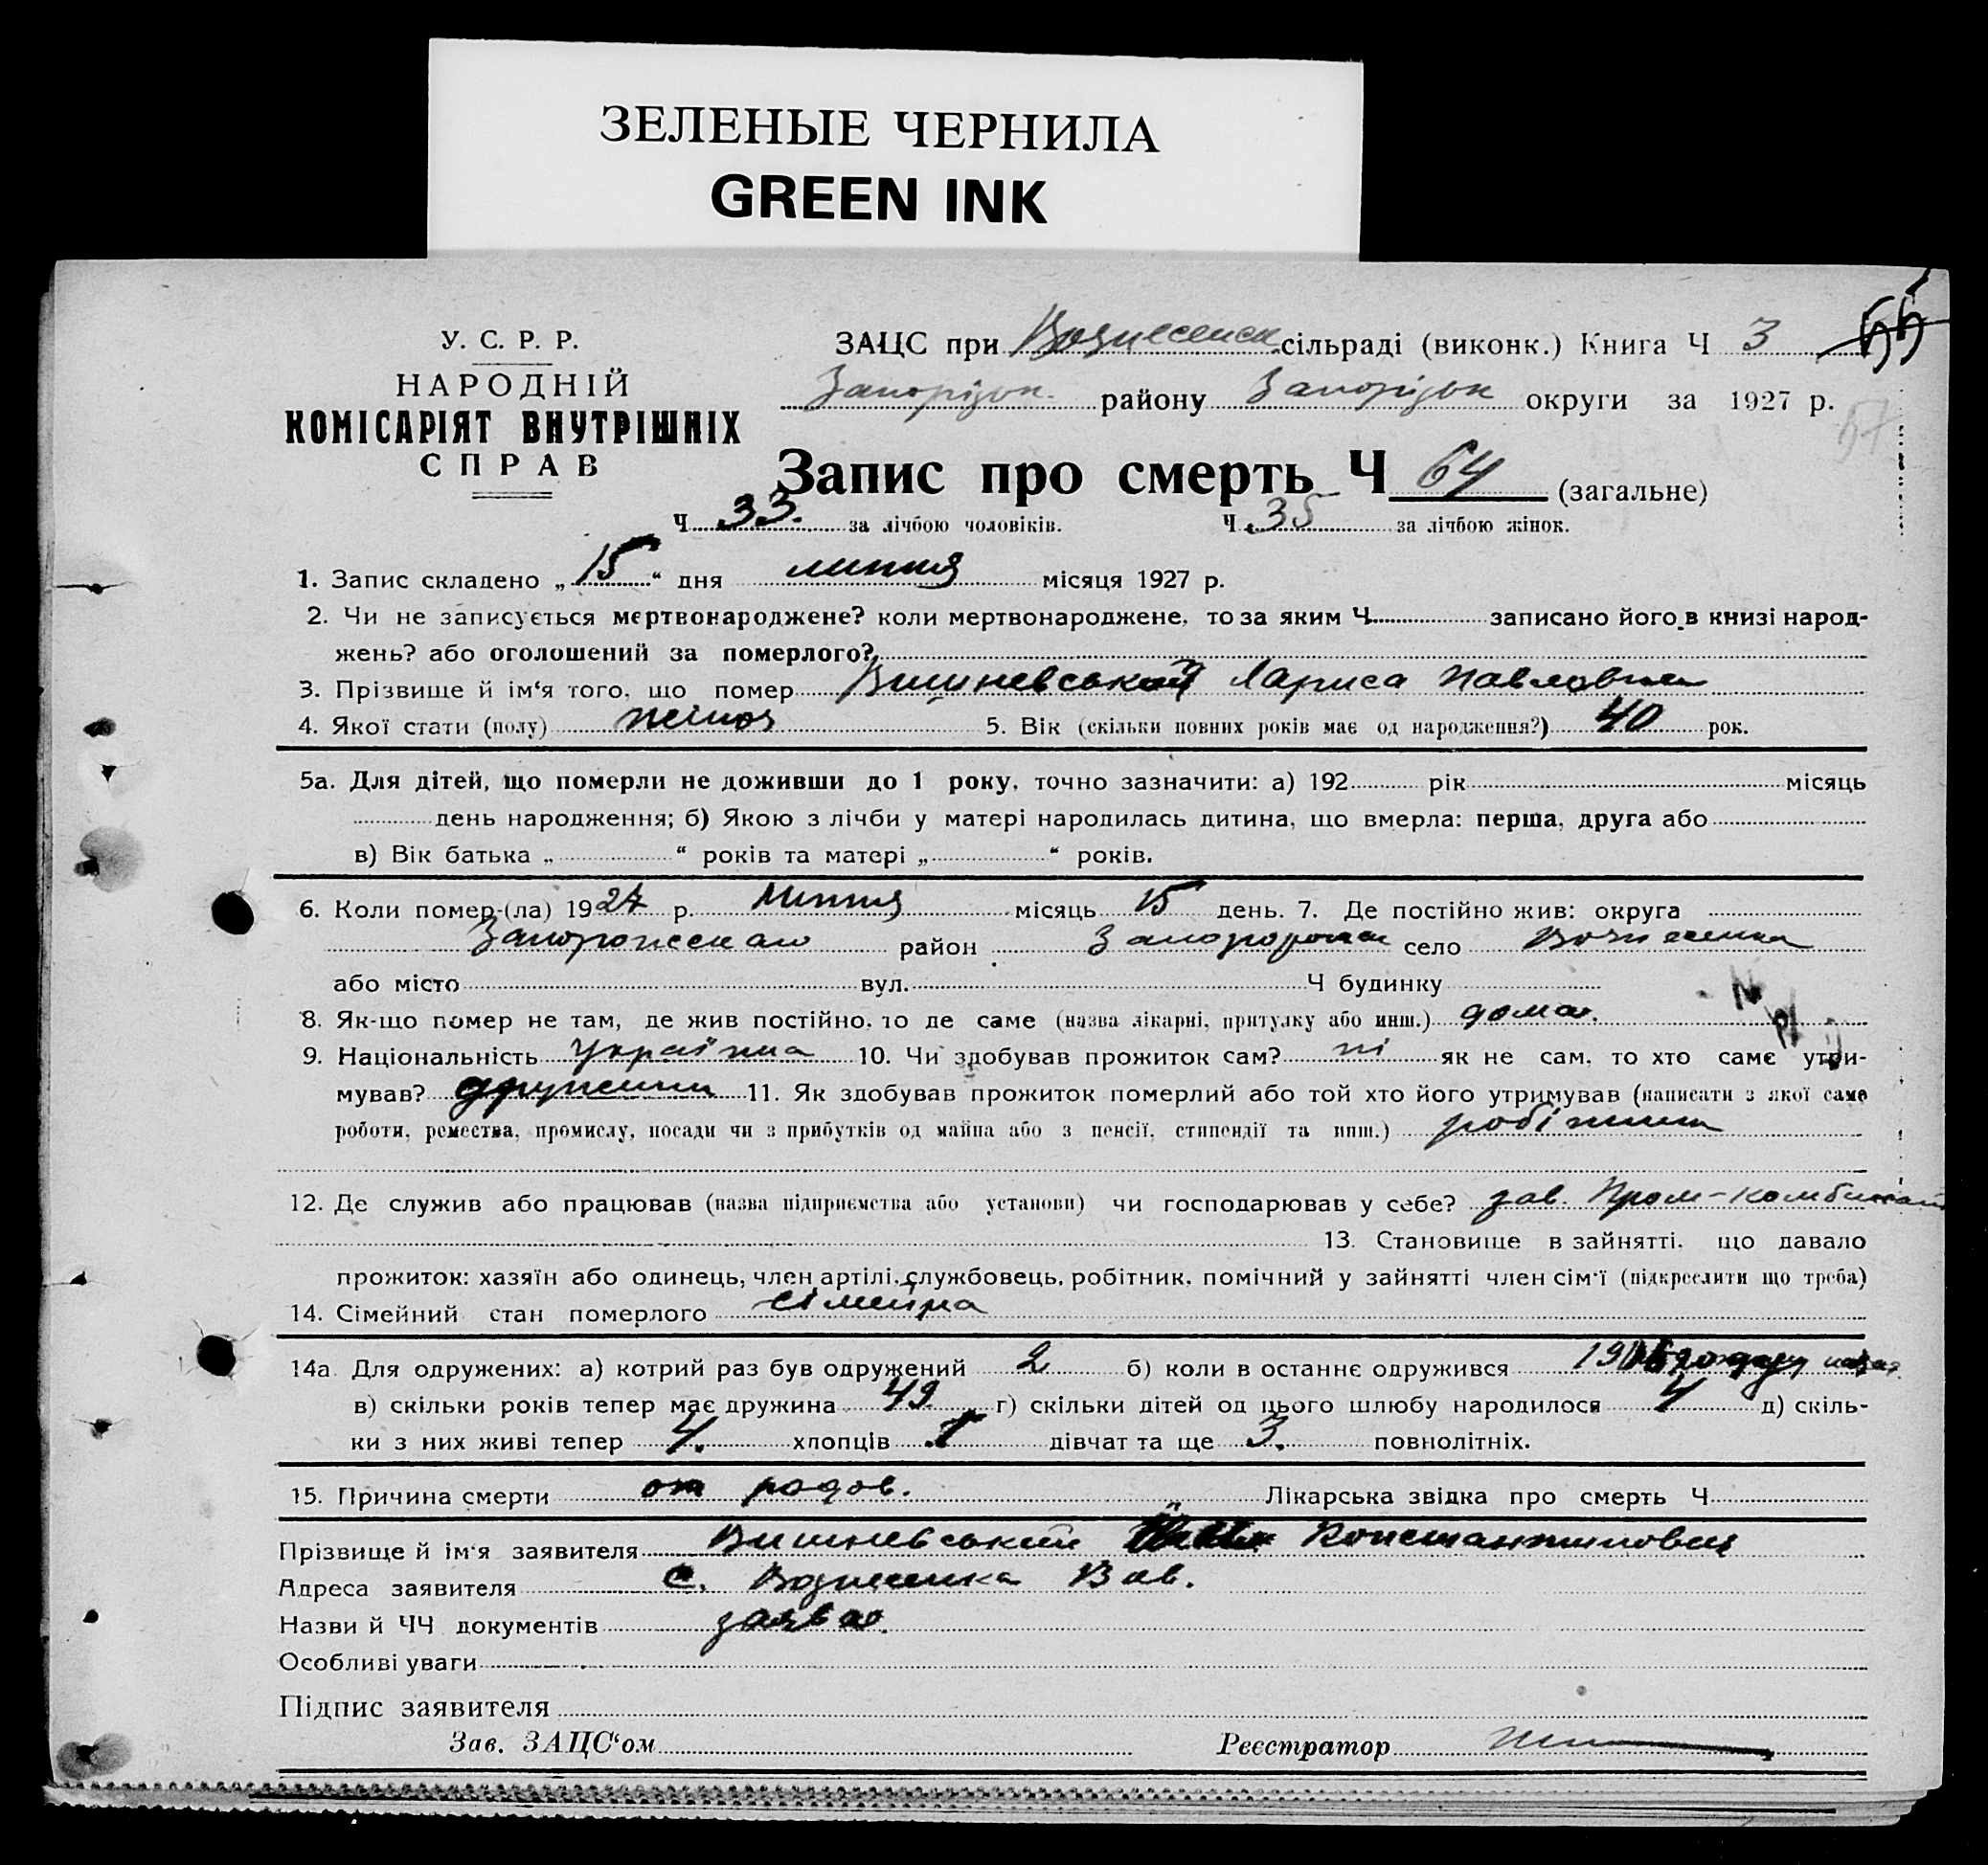 ЗЕЛЕНЫЕ ЧЕРНИЛА
GREEN INK
У. С. Р. Р.
НАРОДНІЙ
КОМІСАРІЯТ ВНУТРІШНІХ
СПРАВ
ЗАЦС при Вознесенск сільраді (виконк.) Книга Ч 3
Запорізьк. району Запорізьк округи за 1927 р.
57
Запис про смерть Ч 64 (загальне)
Ч 33. за лічбою чоловіків. Ч 35 за лічбою жінок.
1. Запис складено „ 15 “ дня липня місяця 1927 р.
2. Чи не записується мертвонароджене? коли мертвонароджене, то за яким Ч записано його в книзі народ-
жень? або оголошений за померлого?
3. Прізвище й ім‘я того, що помер Вишневська Лариса Павловна
4. Якої стати (полу) жіноч 5. Вік (скільки повних років має од народження?) 40 рок.
5а. Для дітей, що померли не доживши до 1 року, точно зазначити: а) 192 рік місяць
день народження; б) Якою з лічби у матері народилась дитина, що вмерла: перша, друга або
в) Вік батька „ “ років та матері „ “ років.
6. Коли помер-(ла) 1927 р. липня місяць 15 день. 7. Де постійно жив: округа
район село Вознесенка
або місто вул. Ч будинку
8. Як-що помер не там, де жив постійно, то де саме (назва лікарні, притулку або инш.) дома.
9. Національність Україпка 10. Чи здобував прожиток сам? ні як не сам, то хто саме утри-
мував? дружина 11. Як здобував прожиток померлий або той хто його утримував (написати з якої саме
роботи, ремества, промислу, посади чи з прибутків од майна або з пенсії, стипендії та инш.) робітник
12. Де служив або працював (назва підприємства або установи) чи господарював у себе? зав. Пром-комбинат
13. Становище в зайнятті, що давало
прожиток: хазяїн або одинець, член артілі, службовець, робітник, помічний у зайнятті член сім‘ї (підкреслити що треба)
14. Сімейний стан померлого сімейна
14а Для одружених: а) котрий раз був одружений 2 б) коли в останнє одружився
в) скільки років тепер має дружина 49. г) скільки дітей од цього шлюбу народилося 4 д) скіль-
ки з них живі тепер 4. хлопців 1 дівчат та ще 3. повнолітніх.
15. Причина смерти от родов. Лікарська звідка про смерть Ч
Прізвище й ім‘я заявителя Вишневський Константинович
Адреса заявителя с. Вознесенка
Назви й ЧЧ документів заява.
Особливі уваги
Підпис заявителя
Зав. ЗАЦС‘ом Реєстратор